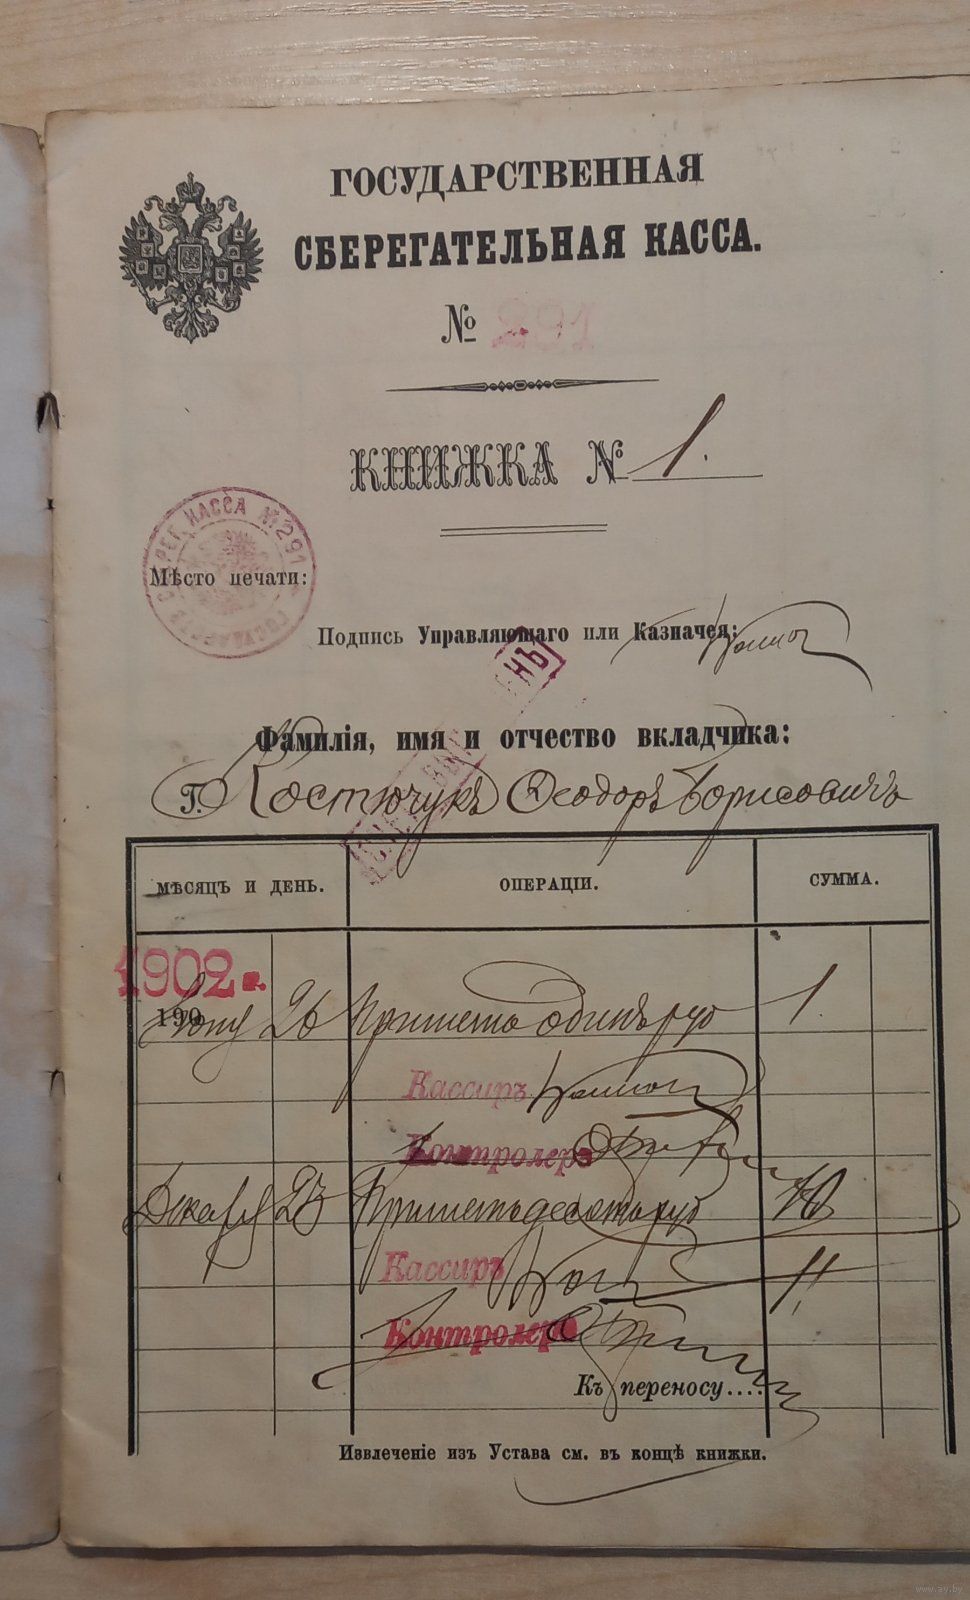 ГОСУДАРСТВЕННАЯ
СБЕРЕГАТЕЛЬНАЯ КАССА.
№ 291
КНИЖКА № 1.
СБЕРЕГ. КАССА № 291 ГОСУДАРСТВ
Мѣсто печати:
Подпись Управляющаго или Казначея:
Фамилія, имя и отчество вкладчика:
Г. Костючукъ Ѳеодоръ Борисовичъ
МѢСЯЦЪ И ДЕНЬ. ОПЕРАЦІИ. СУММА.
1902 г.
190
26 Принято одинъ руб 1.
Кассиръ
Контролеръ
Декабря 23 Принято десять руб 10
Кассиръ 11
Контролеръ
Къ переносу....
Извлеченіе изъ Устава см. въ концѣ книжки.
www.ay.by